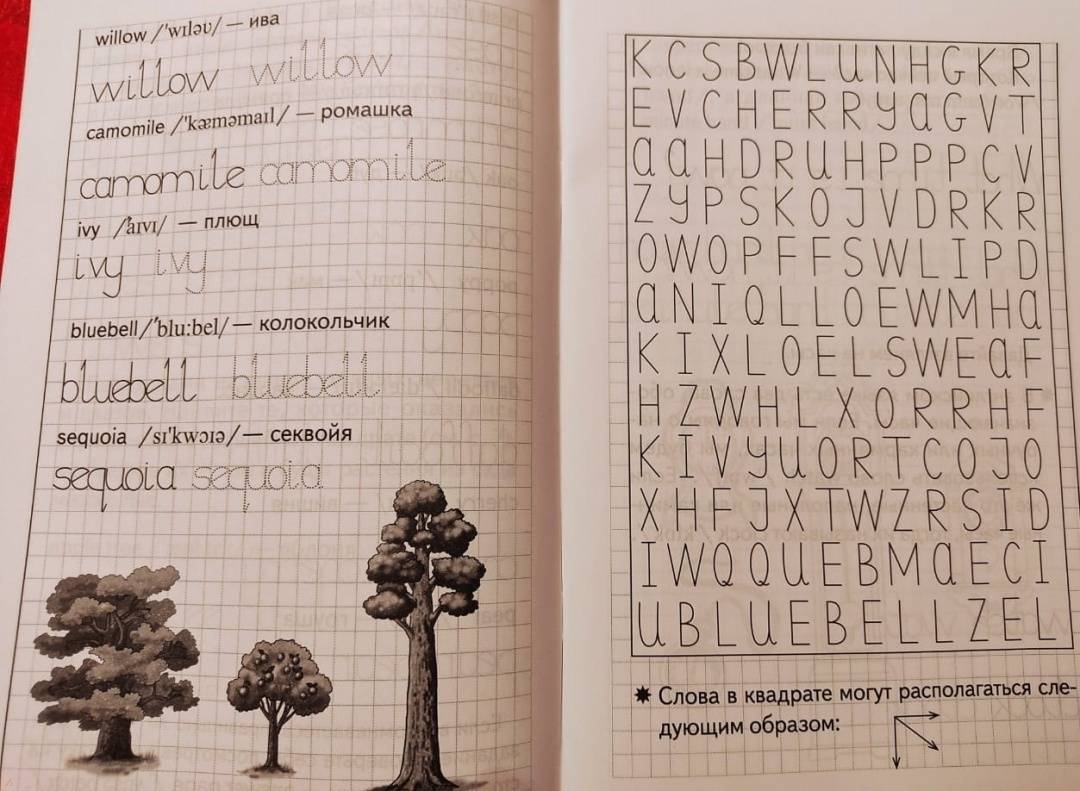 willow /'wɪləʊ/ — ива
willow willow
camomile /'kæməmaɪl/ — ромашка
camomile camomile
ivy /'aɪvɪ/ — плющ
ivy ivy
bluebell/'blu:bel/ — колокольчик
bluebell bluebell
sequoia /sɪ'kwɔɪə/ — секвойя
sequoia sequoia
K C S B W L U N H G K R
E V C H E R R Y a G V T
a a H D R U H P P P C V
Z Y P S K O J V D R K R
O W O P F F S W L I P D
a N I Q L L O E W M H a
K I X L O E L S W E a F
H Z W H L X O R R R H F
K I V Y U O R T C O J O
X H F J X T W Z R S I D
I W Q Q U E B M a E C I
U B L U E B E L L Z E L
✷ Слова в квадрате могут располагаться сле-
дующим образом: